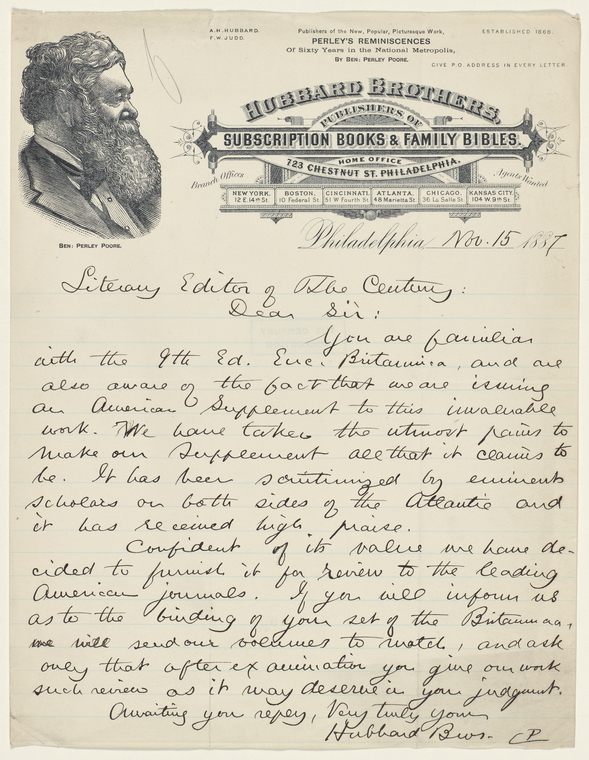 A.H. HUBBARD.
F.W. JUDD.
Publishers of the New, Popular, Picturesque Work,
PERLEY'S REMINISCENCES
Of Sixty Years in the National Metropolis,
BY BEN: PERLEY POORE.
ESTABLISHED 1868.
GIVE P.O. ADDRESS IN EVERY LETTER
HUBBARD BROTHERS,
PUBLISHERS OF
SUBSCRIPTION BOOKS & FAMILY BIBLES.
HOME OFFICE
723 CHESTNUT ST. PHILADELPHIA.
Branch Offices
Agents Wanted
NEW YORK. 12 E. 14th St.
BOSTON. 10 Federal St.
CINCINNATI. 51 W Fourth St.
ATLANTA. 48 Marietta St.
CHICAGO. 36 La Salle St.
KANSAS CITY. 104 W. 9th St.
BEN: PERLEY POORE.
Philadelphia, Nov. 15 1887
Literary Editor of The Century:
Dear Sir:
You are familiar
with the 9th Ed. Enc. Britannica, and are
also aware of the fact that we are issuing
an American Supplement to this invaluable
work. We have taken the utmost pains to
make our Supplement all that it claims to
be. It has been scrutinized by eminent
scholars on both sides of the Atlantic and
it has received high praise.
Confident of its value we have de-
cided to furnish it for review to the leading
American journals. If you will inform us
as to the binding of your set of the Britannica,
we will send our volumes to match, and ask
only that after examination you give our work
such review as it may deserve in your judgment.
Awaiting your reply, Very truly yours
Hubbard Bros.